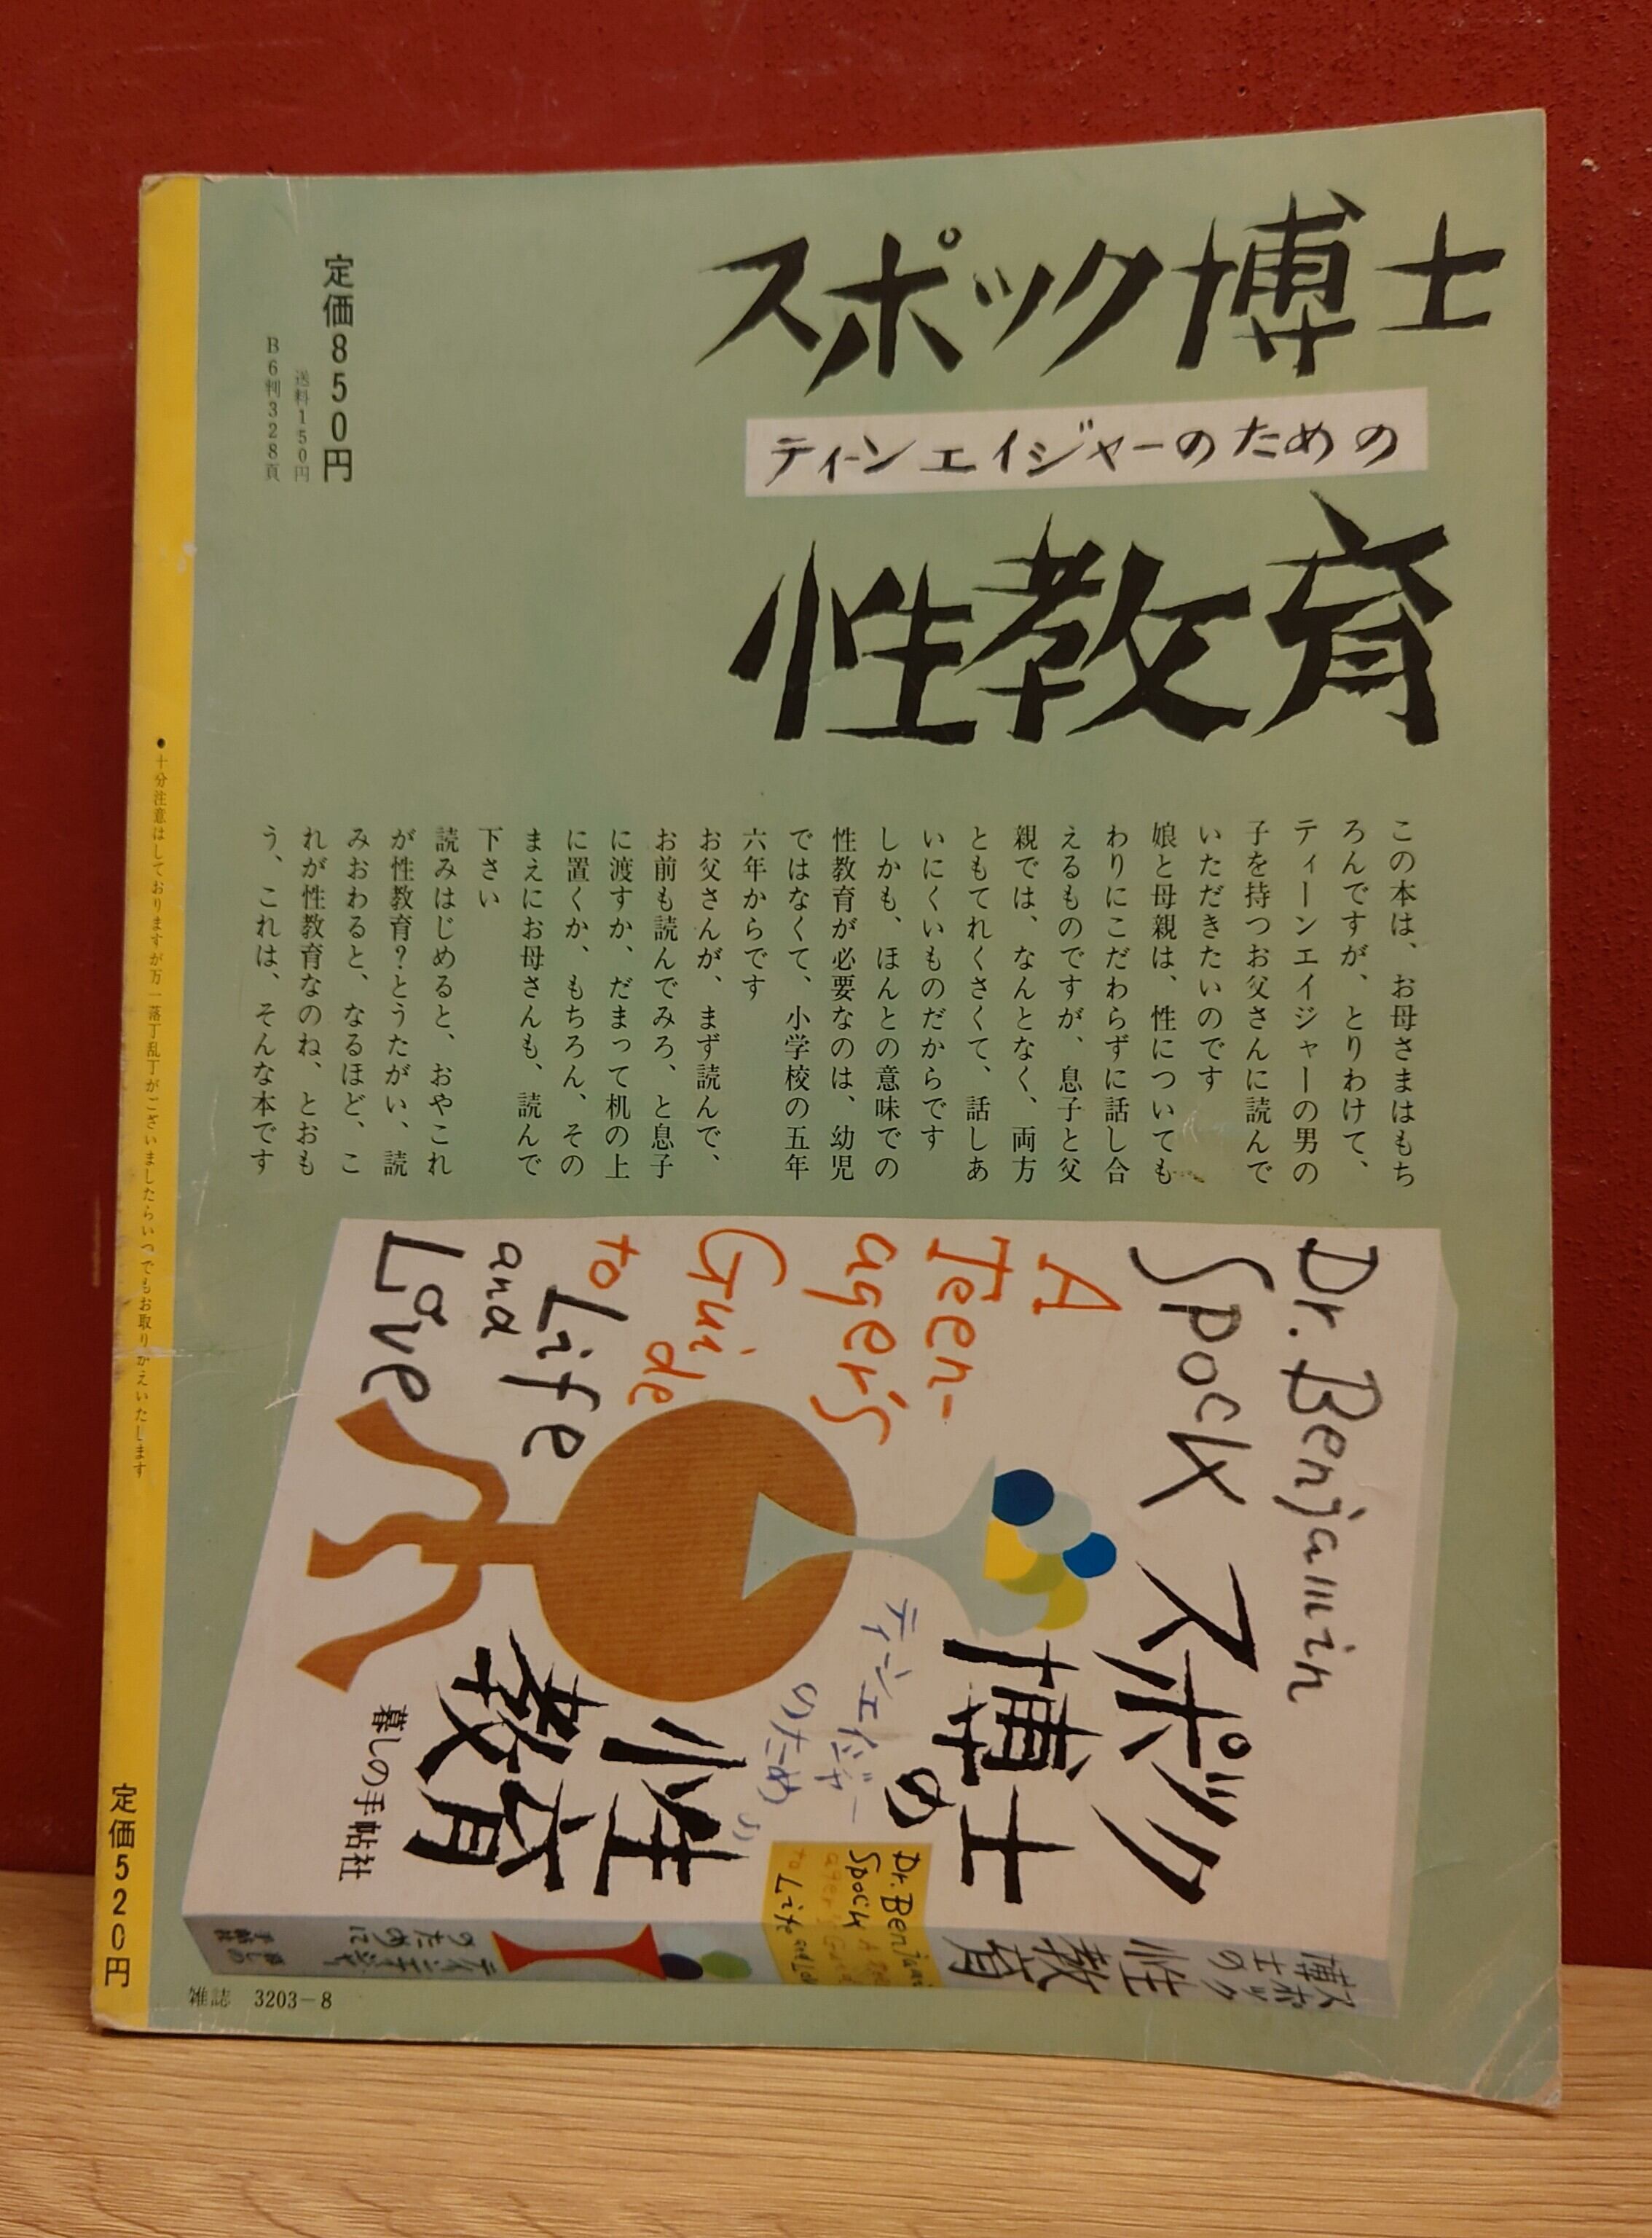 スポック博士
ティーンエイジャーのための
性教育
この本は、お母さまはもち
ろんですが、とりわけて、
ティーンエイジャーの男の
子を持つお父さんに読んで
いただきたいのです
娘と母親は、性についても
わりにこだわらずに話し合
えるものですが、息子と父
親では、なんとなく、両方
ともてれくさくて、話しあ
いにくいものだからです
しかも、ほんとの意味での
性教育が必要なのは、幼児
ではなくて、小学校の五年
六年からです
お父さんが、まず読んで、
お前も読んでみろ、と息子
に渡すか、だまって机の上
に置くか、もちろん、その
まえにお母さんも、読んで
下さい
読みはじめると、おやこれ
が性教育?とうたがい、読
みおわると、なるほど、こ
れが性教育なのね、とおも
う、これは、そんな本です
定価850円
送料150円
B6判328頁
Dr. Benjamin
Spock
A
Teen-
ager's
Guide
to Life
and
Love
スポック
博士の
ティーンエイジャー
のための
性
教育
暮しの手帖社
スポック
博士の
性教育
Dr. Benjami
Spock
to Life and Lo
ティーンエイジャ
のために
暮しの
手帖社
●十分注意はしておりますが万一落丁乱丁がございましたらいつでもお取りかえいたします
定価520円
雑誌 3203-8